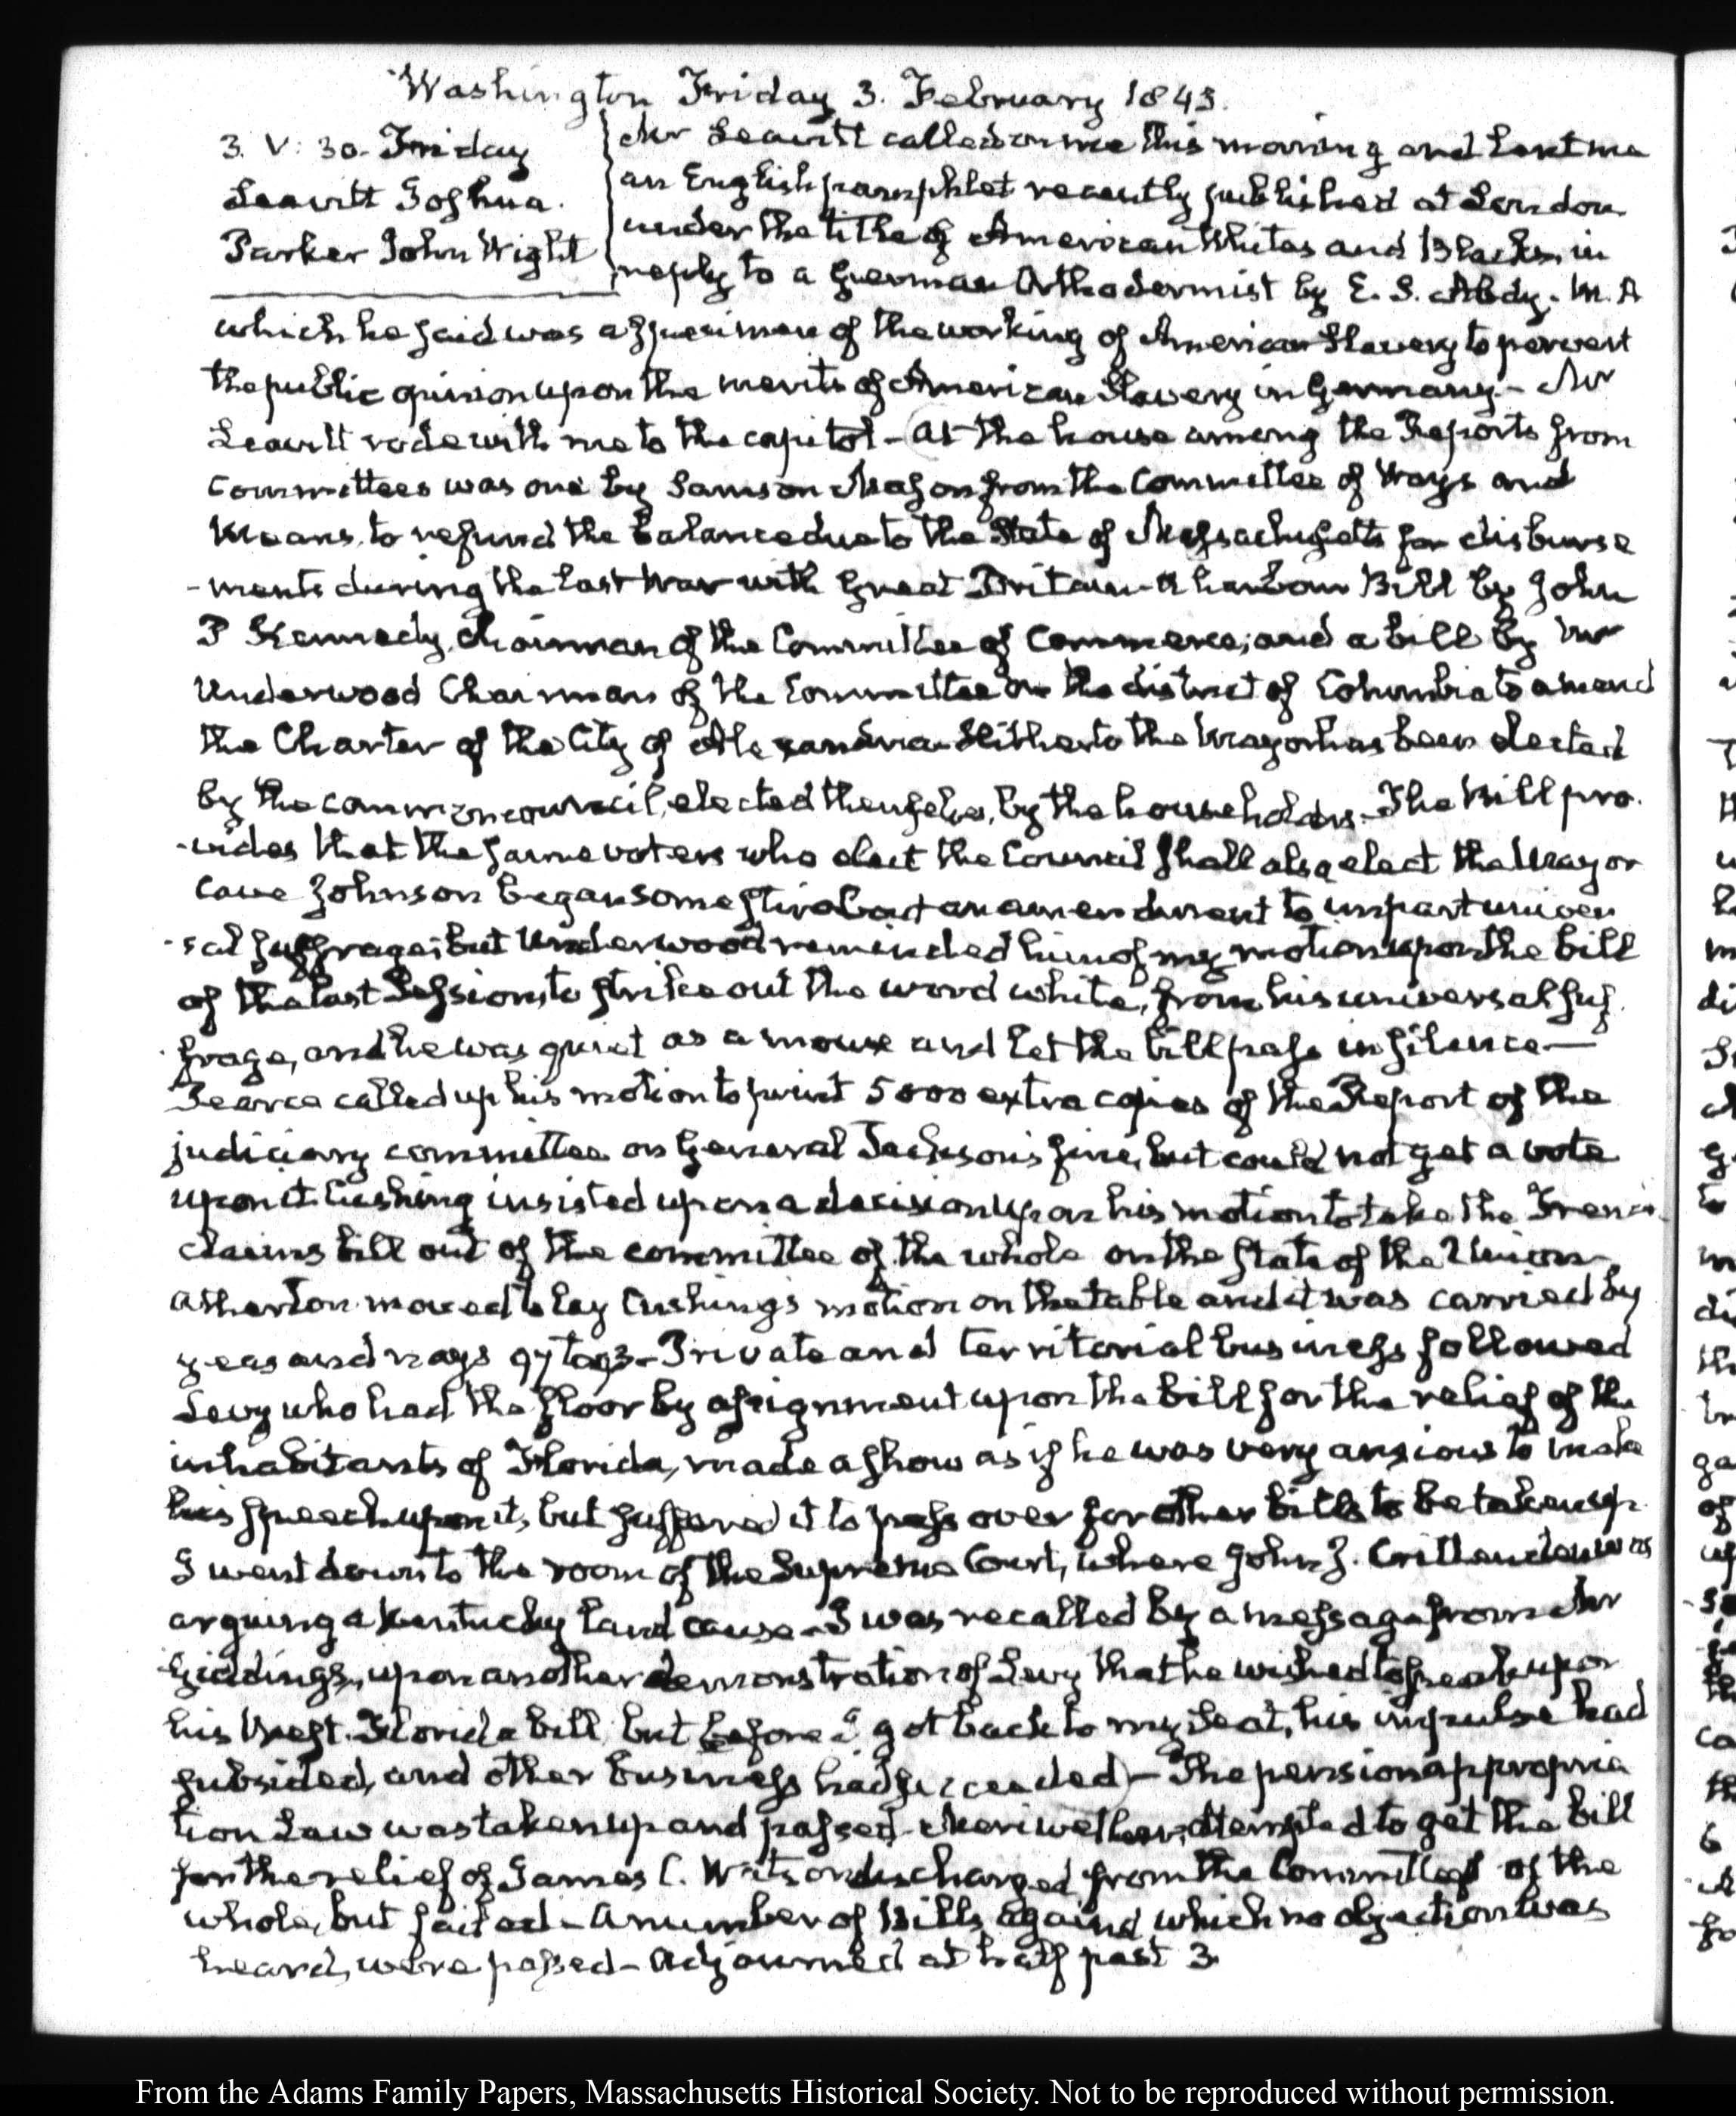 Washington Friday 3. February 1843.
3. V: 30. Friday
Leavitt Joshua.
Parker John Wright
Mr Leavitt called on me this morning and lent me
an English pamphlet recently published at London
under the title of American Whites and Blacks, in
reply to a German Orthodermist by E. S. Abdy. M. A
which he said was a specimen of the working of American Slavery to pervert
the public opinion upon the merits of American Slavery in Germany— Mr
Leavitt rode with me to the capitol— At the house among the Reports from
Committees was one by Samson Mason from the Committee of Ways and
Means, to refund the balance due to the State of Massachusetts for disburse
-ments during the last War with Great Britain— A harbour Bill by John
P Kennedy, Chairman of the Committee of Commerce; and a bill by Mr
Underwood Chairman of the Committee on the district of Columbia to amend
the Charter of the City of Alexandria— Hitherto the Mayor has been elected
by the common council, elected themselves, by the householders— The Bill pro-
-vides that the same voters who elect the Council shall also elect the Mayor
Cave Johnson began some stir about an amendment to impart univer
-sal suffrage; but Underwood reminded him of my motion upon the bill
of the last Session, to strike out the word white, from his universal suf-
-frage, and he was quiet as a mouse and let the bill pass in silence—
Pearce called up his motion to print 5000 extra copies of the Report of the
judiciary committee on General Jackson's fine, but could not get a vote
upon it. Cushing insisted upon a decision upon his motion to take the French
claims bill out of the committee of the whole on the State of the Union—
Atherton moved to lay Cushing's motion on the table and it was carried by
yeas and nays 97 to 93— Private and territorial business followed
Levy who had the floor by assignment upon the bill for the relief of the
inhabitants of Florida, made a show as if he was very anxious to make
his speech upon it, but suffered it to pass over for other bills to be taken up.
I went down to the room of the Supreme Court, where John J. Crittenden was
arguing a Kentucky land cause— I was recalled by a message from Mr
Giddings, upon another demonstration of Levy that he wished to speak upon
his West. Florida bill, but before I got back to my Seat, his impulse had
subsided, and other business had succeeded— The pension appropria
tion Law was taken up and passed— Meriwether attempted to get the bill
for the relief of James C. Watson discharged from the Committee of the
whole, but failed— A number of Bills, against which no objection was
heard, were passed— Adjourned at half past 3.
From the Adams Family Papers, Massachusetts Historical Society. Not to be reproduced without permission.